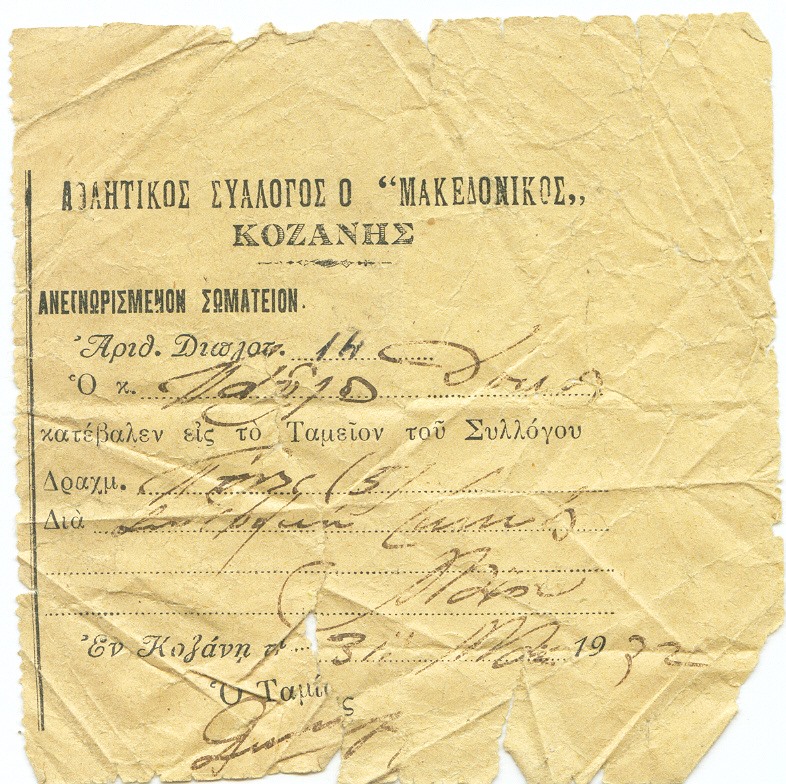 ΑΘΛΗΤΙΚΟΣ ΣΥΛΛΟΓΟΣ Ο “ΜΑΚΕΔΟΝΙΚΟΣ„
ΚΟΖΑΝΗΣ
ΑΝΕΓΝΩΡΙΣΜΕΝΟΝ ΣΩΜΑΤΕΙΟΝ.
Ἀριθ. Διπλοτ.
Ὁ κ. Παῦλο
κατέβαλεν εἰς τὸ Ταμεῖον τοῦ Συλλόγου
Δραχμ. Πέντε (5)
Διὰ
Μαΐου
Ἐν Κοζάνῃ τ 31 1932
Ὁ Ταμίας